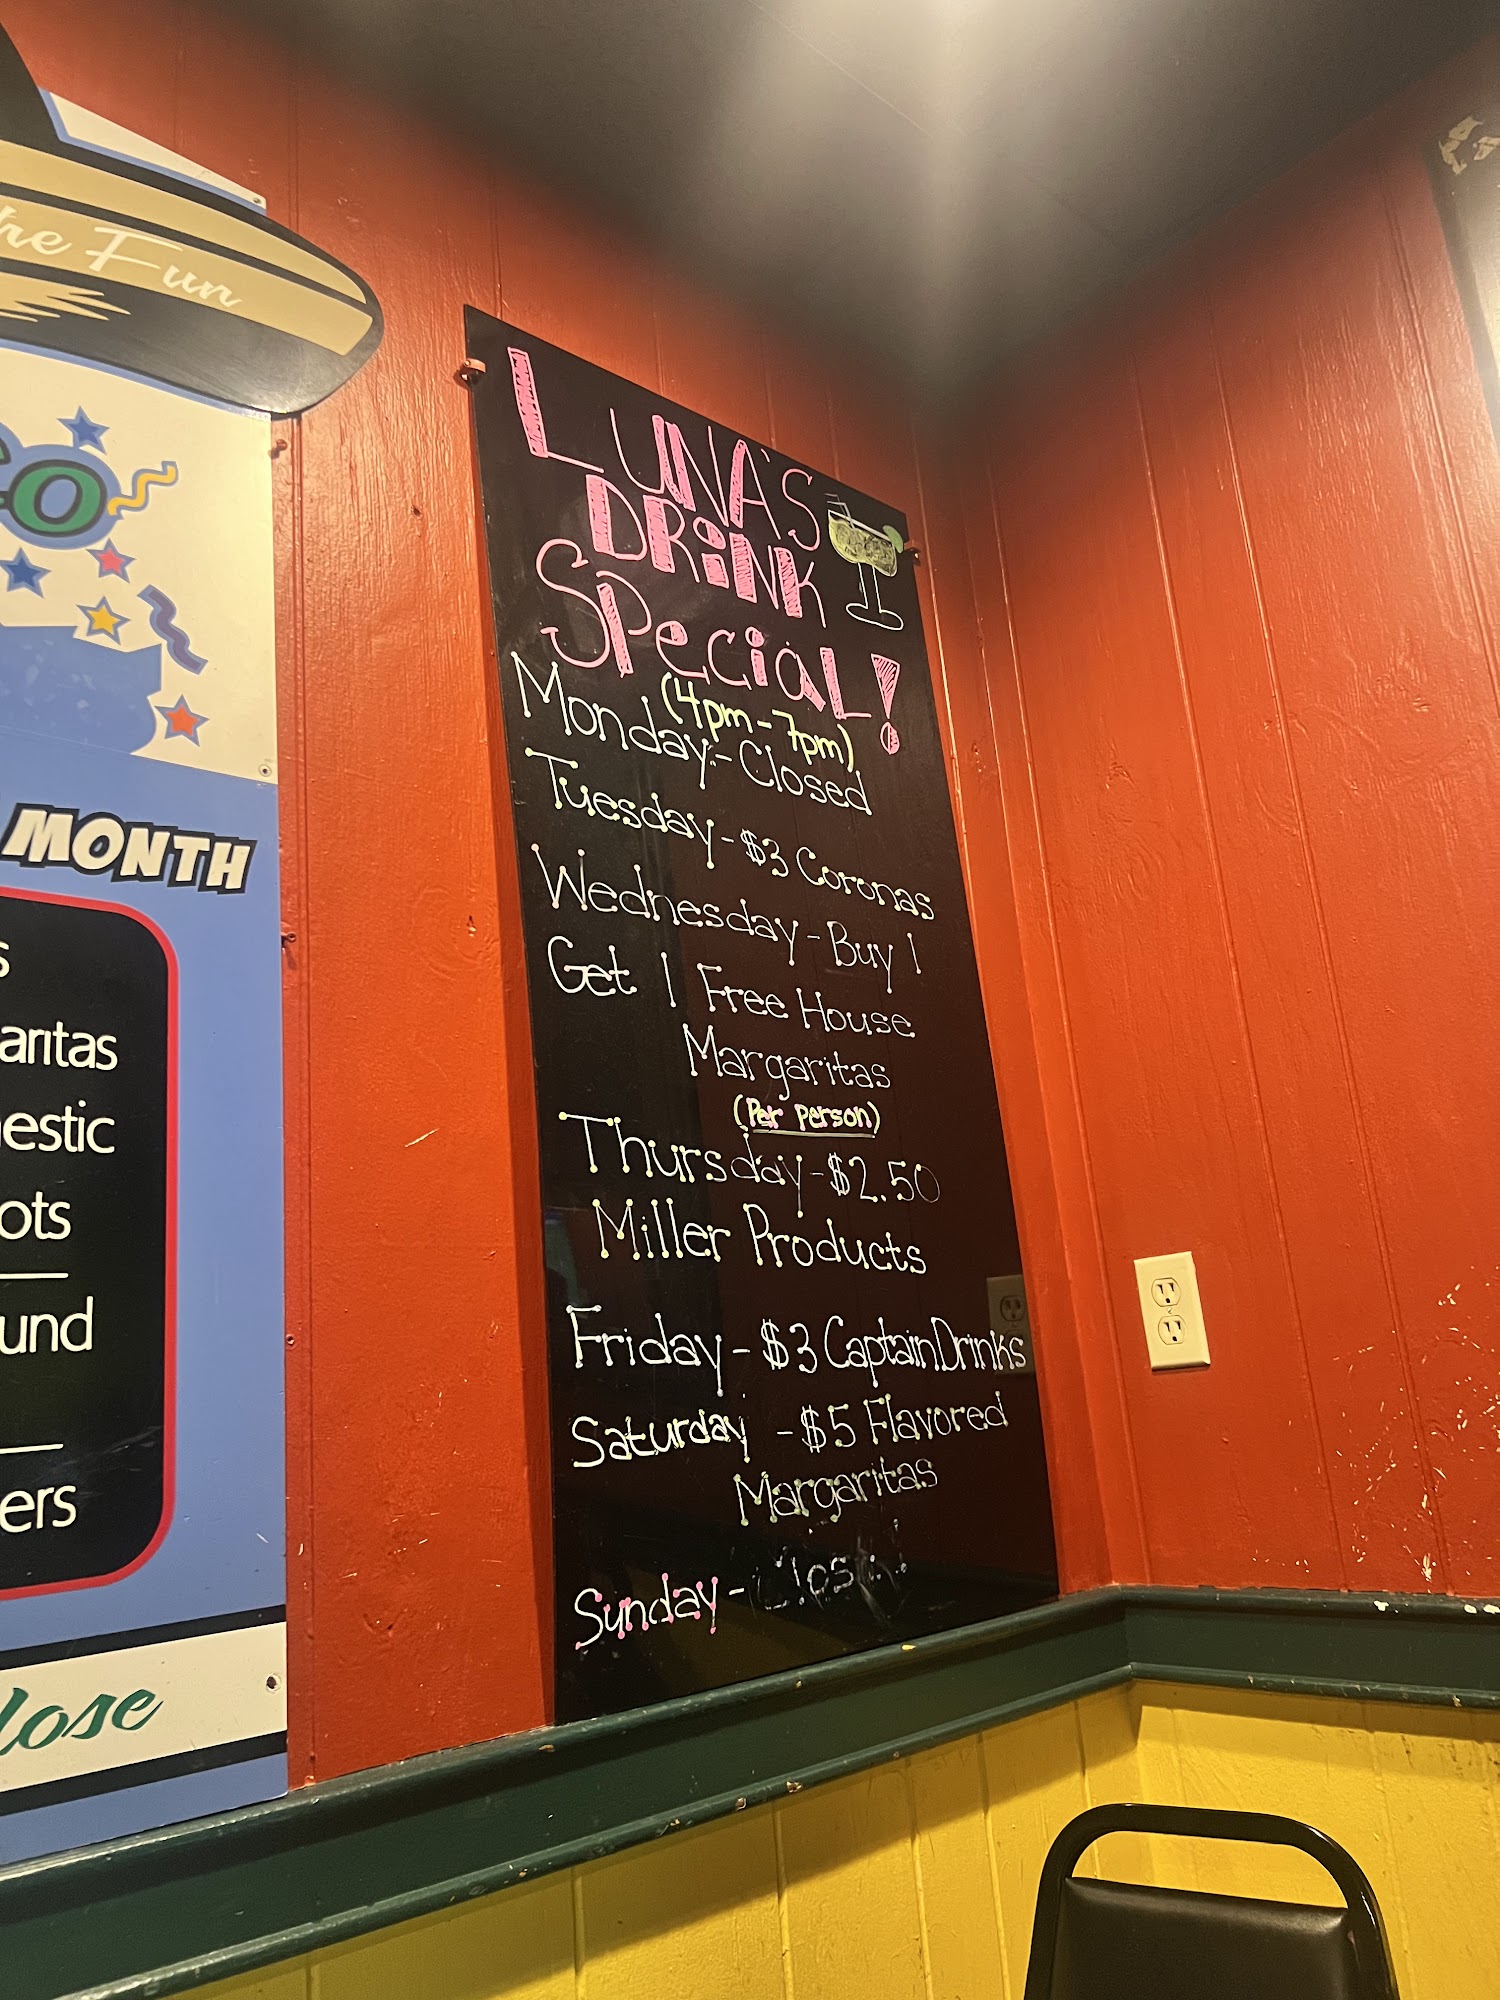 the Fun
GO
MONTH
s
aritas
estic
ots
und
ers
lose
LUNA'S
DRiNK
SPeciaL!
(4pm-7pm)
Monday:- Closed
Tuesday-$3 Coronas
Wednesday-Buy 1
Get 1 Free House
Margaritas
(Per Person)
Thursday-$2.50
Miller Products
Friday-$3 Captain Drinks
Saturday -$5 Flavored
Margaritas
Sunday-